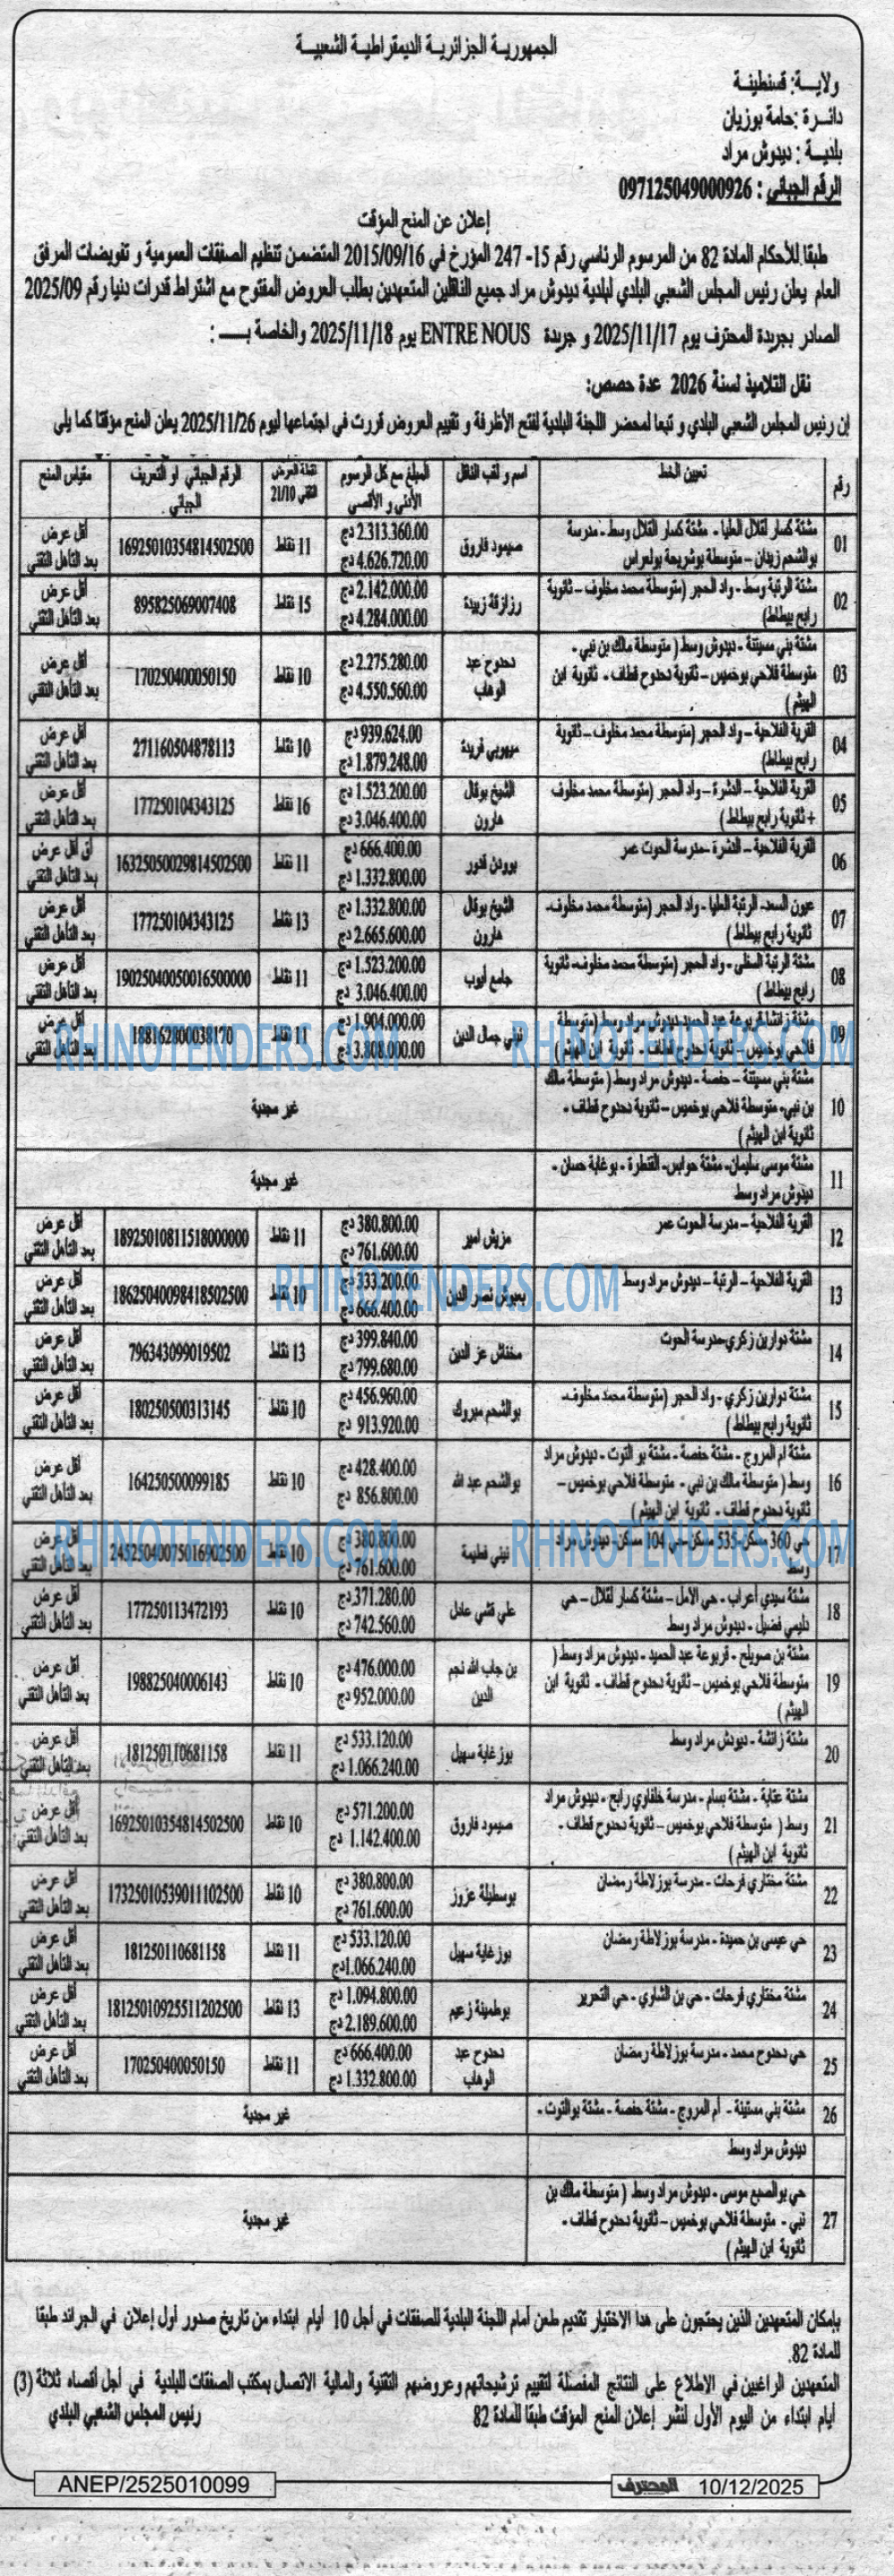 الجمهورية الجزائرية الديمقراطية الشعبية
ولاية: قسنطينة
دائرة :حامة بوزيان
بلدية : ديدوش مراد
الرقم الجبائي : 097125049000926
إعلان عن المنح المؤقت
طبقا للأحكام المادة 82 من المرسوم الرئاسي رقم 15- 247 المؤرخ في 2015/09/16 المتضمن تنظيم الصفقات العمومية و تفويضات المرفق
العام يعلن رئيس المجلس الشعبي البلدي لبلدية ديدوش مراد جميع الناقلين المتعهدين بطلب العروض المفتوح مع اشتراط قدرات دنيا رقم 2025/09
الصادر بجريدة المحترف يوم 2025/11/17 و جريدة ENTRE NOUS يوم 2025/11/18 والخاصة بـ :
نقل التلاميذ لسنة 2026 عدة حصص:
إن رئيس المجلس الشعبي البلدي و تبعا لمحضر اللجنة البلدية لفتح الأظرفة و تقييم العروض قررت في اجتماعها ليوم 2025/11/26 يعلن المنح مؤقتا كما يلي
رقم | تعيين الخط | اسم و لقب الناقل | المبلغ مع كل الرسوم الأدنى و الأقصى | نقطة العرض التقني 21/10 | الرقم الجبائي او التعريف الجبائي | مقياس المنح
01 | مشتة كسار لقلال العليا - مشتة كسار القلال وسط - مدرسة بوالشحم زيدان – متوسطة بوشريحة بولعراس | صيمود فاروق | 2.313.360.00 دج 4.626.720.00 دج | 11 نقاط | 16925010354814502500 | أقل عرض بعد التأهل التقني
02 | مشتة الرتبة وسط - واد الحجر (متوسطة محمد مخلوف – ثانوية رابح بيطاط) | رزازقة زبيدة | 2.142.000.00 دج 4.284.000.00 دج | 15 نقاط | 895825069007408 | أقل عرض بعد التأهل التقني
03 | مشتة بني مستينة - ديدوش وسط ( متوسطة مالك بن نبي - متوسطة فلاحي بوخميس – ثانوية دحدوح قطاف - ثانوية ابن الهيثم ) | دحدوح عبد الوهاب | 2.275.280.00 دج 4.550.560.00 دج | 10 نقاط | 170250400050150 | أقل عرض بعد التأهل التقني
04 | القرية الفلاحية – واد الحجر (متوسطة محمد مخلوف – ثانوية رابح بيطاط) | ميهوبي فريدة | 939.624.00 دج 1.879.248.00 دج | 10 نقاط | 271160504878113 | أقل عرض بعد التأهل التقني
05 | القرية الفلاحية – الدشرة – واد الحجر (متوسطة محمد مخلوف + ثانوية رابح بيطاط ) | الشيخ بوقال هارون | 1.523.200.00 دج 3.046.400.00 دج | 16 نقاط | 177250104343125 | أقل عرض بعد التأهل التقني
06 | القرية الفلاحية – الدشرة -مدرسة الحوت عمر | بوودن قدور | 666.400.00 دج 1.332.800.00 دج | 11 نقاط | 16325050029814502500 | أق أقل عرض بعد التأهل التقني
07 | عيون السعد- الرتبة العليا - واد الحجر (متوسطة محمد مخلوف- ثانوية رابح بيطاط ) | الشيخ بوقال هارون | 1.332.800.00 دج 2.665.600.00 دج | 13 نقاط | 177250104343125 | أقل عرض بعد التأهل التقني
08 | مشتة الرتبة السفلى - واد الحجر (متوسطة محمد مخلوف- ثانوية رابح بيطاط ) | جامع أيوب | 1.523.200.00 دج 3.046.400.00 دج | 11 نقاط | 19025040050016500000 | أقل عرض بعد التأهل التقني
09 | مشتة زانشة قربوعة عبد الحميد-ديدوش مراد وسط (متوسطة فلاحي بوخميس – ثانوية دحدوح قطاف - ثانوية ابن الهيثم ) | نيني جمال الدين | 1.904.000.00 دج 3.808.000.00 دج | 11 نقاط | 188162800038170 | أقل عرض بعد التأهل التقني
10 | مشتة بني مستينة – حفصة - ديدوش مراد وسط ( متوسطة مالك بن نبي- متوسطة فلاحي بوخميس – ثانوية دحدوح قطاف - ثانوية ابن الهيثم ) | غير مجدية
11 | مشتة موسى سليمان- مشتة حوابس- القنطرة - بوغابة حسان - ديدوش مراد وسط | غير مجدية
12 | القرية الفلاحية – مدرسة الحوت عمر | مزيش امير | 380.800.00 دج 761.600.00 دج | 11 نقاط | 18925010811518000000 | أقل عرض بعد التأهل التقني
13 | القرية الفلاحية – الرتبة – ديدوش مراد وسط | نصر الدين | 333.200.00 دج 666.400.00 دج | 10 نقاط | 18625040098418502500 | أقل عرض بعد التأهل التقني
14 | مشتة دوارين زكري-مدرسة الحوت | مخناش عز الدين | 399.840.00 دج 799.680.00 دج | 13 نقاط | 796343099019502 | أقل عرض بعد التأهل التقني
15 | مشتة دوارين زكري - واد الحجر (متوسطة محمد مخلوف- ثانوية رابح بيطاط ) | بوالشحم مبروك | 456.960.00 دج 913.920.00 دج | 10 نقاط | 180250500313145 | أقل عرض بعد التأهل التقني
16 | مشتة ام المروج - مشتة حفصة - مشتة بو التوت - ديدوش مراد وسط ( متوسطة مالك بن نبي - متوسطة فلاحي بوخميس – ثانوية دحدوح قطاف - ثانوية ابن الهيثم ) | بوالشحم عبد الله | 428.400.00 دج 856.800.00 دج | 10 نقاط | 164250500099185 | أقل عرض بعد التأهل التقني
17 | حي 360 مسكن- 535 مسكن-حي 104 مسكن- ديدوش مراد وسط | نيني فطيمة | 380.800.00 دج 761.600.00 دج | 10 نقاط | 24525040075016902500 | أقل عرض بعد التأهل التقني
18 | مشتة سيدي أعراب - حي الأمل – مشتة كسار لقلال – حي دليمي فضيل - ديدوش مراد وسط | علي قشي عادل | 371.280.00 دج 742.560.00 دج | 10 نقاط | 177250113472193 | أقل عرض بعد التأهل التقني
19 | مشتة بن صويلح - قربوعة عبد الحميد - ديدوش مراد وسط ( متوسطة فلاحي بوخميس – ثانوية دحدوح قطاف - ثانوية ابن الهيثم ) | بن جاب الله نجم الدين | 476.000.00 دج 952.000.00 دج | 10 نقاط | 198825040006143 | أقل عرض بعد التأهل التقني
20 | مشتة زانشة – ديدوش مراد وسط | بوزغاية سهيل | 533.120.00 دج 1.066.240.00 دج | 11 نقاط | 181250110681158 | أقل عرض بعد التأهل التقني
21 | مشتة عتابة - مشتة بسام - مدرسة خلفاوي رابح - ديدوش مراد وسط ( متوسطة فلاحي بوخميس – ثانوية دحدوح قطاف - ثانوية ابن الهيثم ) | صيمود فاروق | 571.200.00 دج 1.142.400.00 دج | 10 نقاط | 16925010354814502500 | أقل عرض بعد التأهل التقني
22 | مشتة مختاري فرحات - مدرسة بوزلاطة رمضان | بوسطيلة عزوز | 380.800.00 دج 761.600.00 دج | 10 نقاط | 17325010539011102500 | أقل عرض بعد التأهل التقني
23 | حي عيسى بن حميدة - مدرسة بوزلاطة رمضان | بوزغاية سهيل | 533.120.00 دج 1.066.240.00 دج | 11 نقاط | 181250110681158 | أقل عرض بعد التأهل التقني
24 | مشتة مختاري فرحات - حي بن الشاوي - حي التحرير | بوطمينة زعيم | 1.094.800.00 دج 2.189.600.00 دج | 13 نقاط | 18125010925511202500 | أقل عرض بعد التأهل التقني
25 | حي دحدوح محمد - مدرسة بوزلاطة رمضان | دحدوح عبد الوهاب | 666.400.00 دج 1.332.800.00 دج | 11 نقاط | 170250400050150 | أقل عرض بعد التأهل التقني
26 | مشتة بني مستينة - أم المروج - مشتة حفصة - مشتة بوالتوت - ديدوش مراد وسط | غير مجدية
27 | حي بوالصبع موسى - ديدوش مراد وسط ( متوسطة مالك بن نبي - متوسطة فلاحي بوخميس – ثانوية دحدوح قطاف - ثانوية ابن الهيثم ) | غير مجدية
بإمكان المتعهدين الذين يحتجون على هدا الاختيار تقديم طعن أمام اللجنة البلدية للصفقات في أجل 10 أيام ابتداء من تاريخ صدور أول إعلان في الجرائد طبقا
للمادة 82.
المتعهدين الراغبين في الاطلاع على النتائج المفصلة لتقييم ترشيحاتهم وعروضهم التقنية والمالية الاتصال بمكتب الصفقات للبلدية في أجل أقصاه ثلاثة (3)
أيام ابتداء من اليوم الأول لنشر إعلان المنح المؤقت طبقا للمادة 82
رئيس المجلس الشعبي البلدي
ANEP/2525010099
المحترف 10/12/2025
RHINOTENDERS.COM
RHINOTENDERS.COM
RHINOTENDERS.COM
RHINOTENDERS.COM
RHINOTENDERS.COM